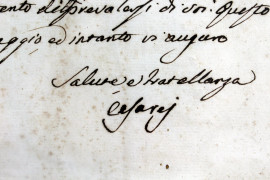 ento di prevalersi di voi. Questo
aggio, ed intanto vi auguro
Salute e Fratellanza
Cesarej